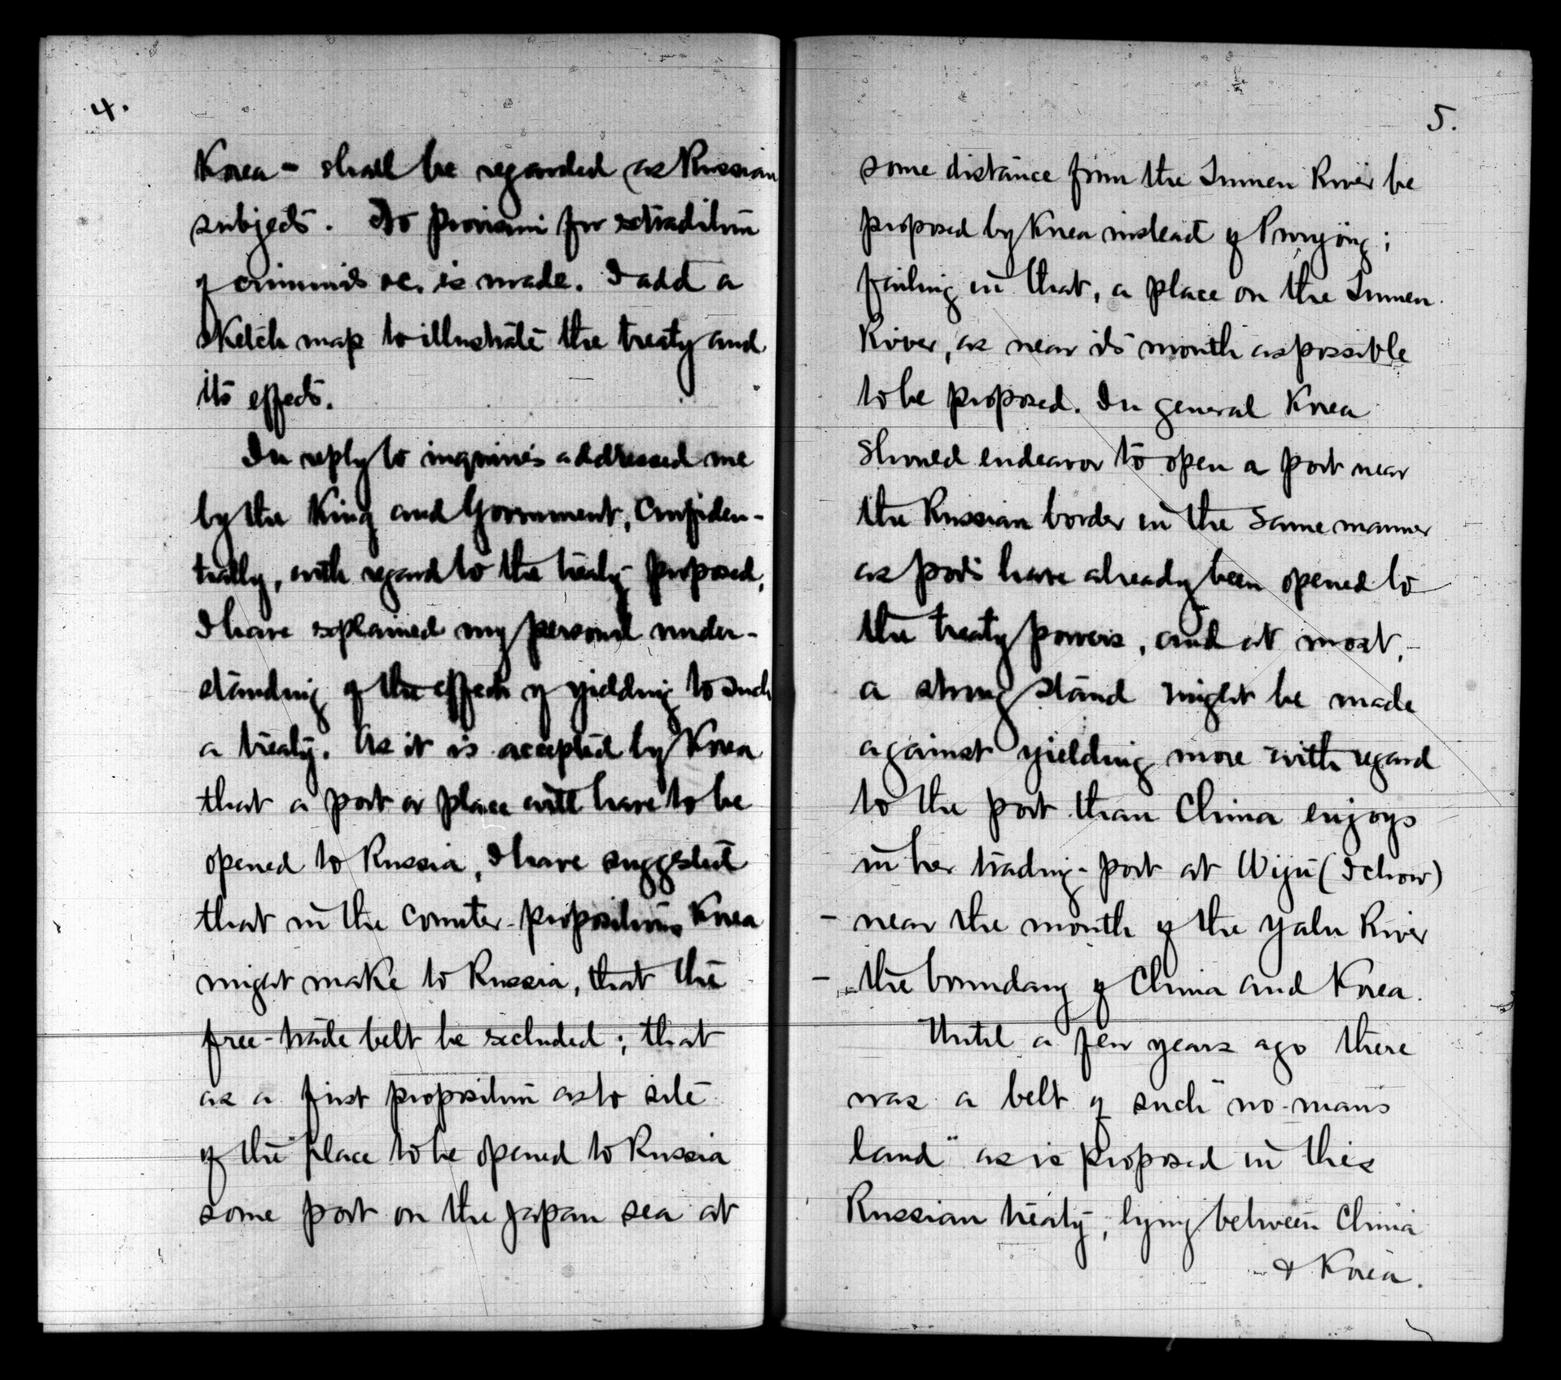 4.
Korea - shall be regarded as Russian
subjects. No provision for extradition
of criminals &c. is made. I add a
sketch map to illustrate the treaty and
its effects.
In reply to inquiries addressed me
by the King and Government, confiden-
tially, with regard to the treaty proposed,
I have explained my personal under-
standing of the effects of yielding to such
a treaty. As it is accepted by Korea
that a port or place will have to be
opened to Russia, I have suggested
that in the counter-propositions Korea
might make to Russia, that the
free-trade belt be excluded; that
as a first proposition as to site
of the place to be opened to Russia
some port on the Japan sea at
5.
some distance from the Tumen River be
proposed by Korea instead of
failing in that, a place on the Tumen
River, as near its mouth as possible
to be proposed. In general Korea
should endeavor to open a port near
the Russian border in the same manner
as ports have already been opened to
the treaty powers, and at most,-
a strong stand might be made
against yielding more with regard
to the port than China enjoys
in her trading-port at Wiju (Ichow)
- near the mouth of the Yalu River
- the boundary of China and Korea.
Until a few years ago there
was a belt of such "no-man's
land" as is proposed in this
Russian treaty, lying between China
& Korea.